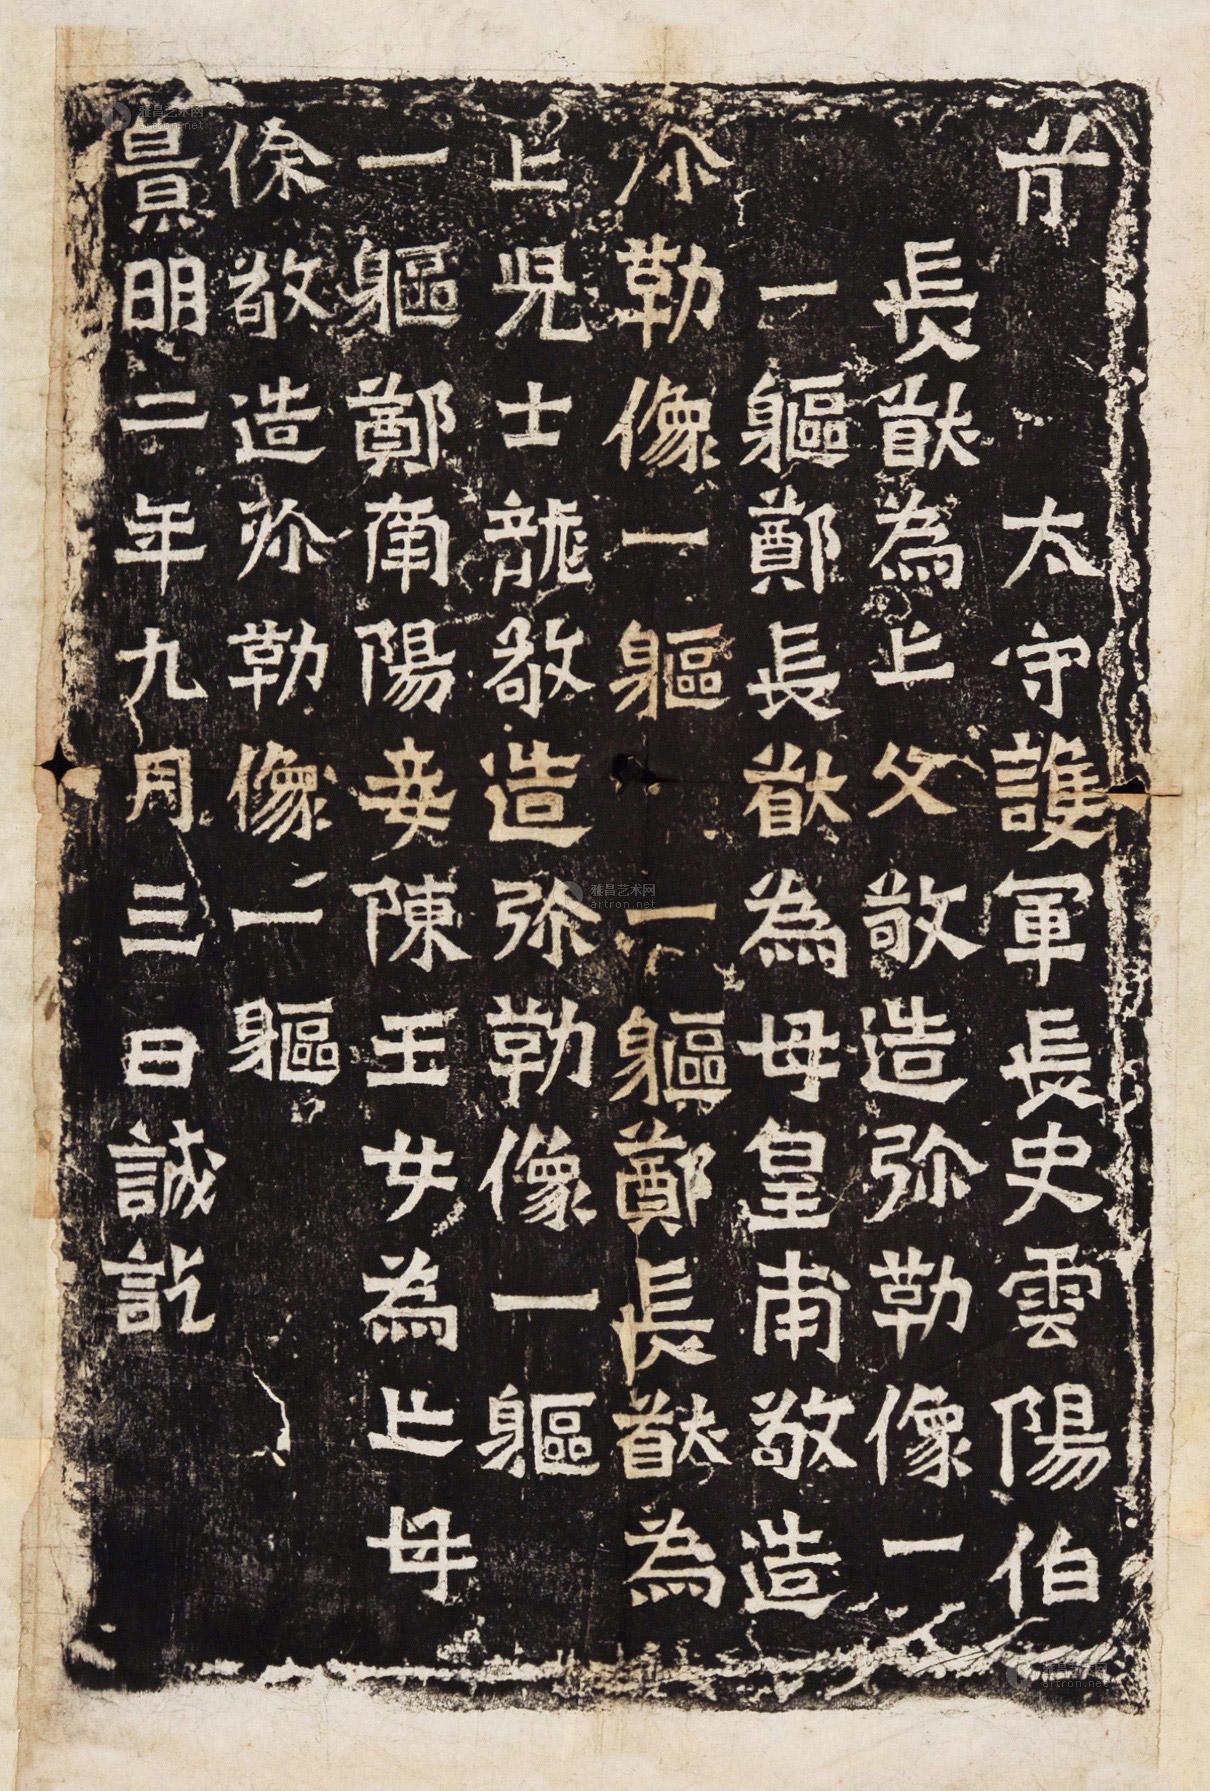 前 太守護軍長史雲陽伯
長猷為亡父敬造弥勒像一
一軀鄭長猷為母皇甫敬造
弥勒像一軀一軀鄭長猷為
亡児士龍敬造弥勒像一軀
一軀鄭南陽妾陳玉女為亡母
徐敬造弥勒像一軀
景明二年九月三日誠訖
雅昌艺术网
artron.net
雅昌艺术网
artron.net
雅昌艺术网
artron.net